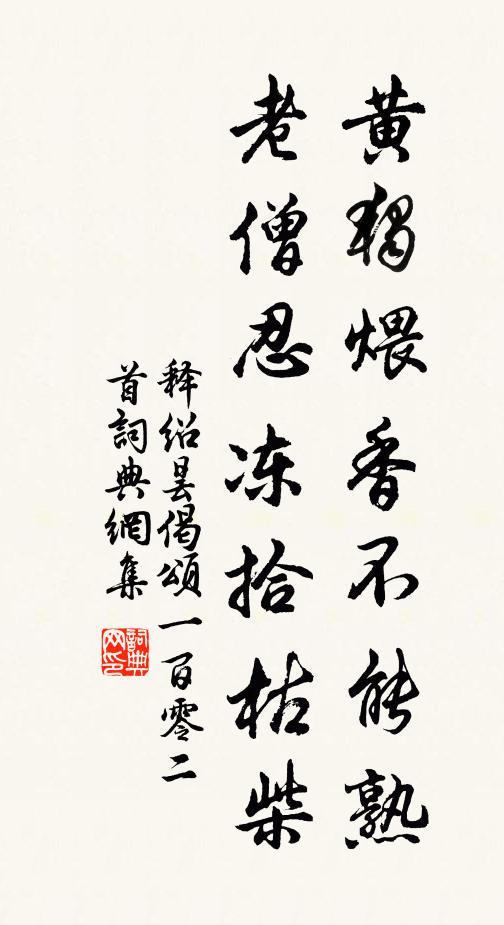 黄獨煨香不能熟
老僧忍冻拾枯柴
释绍昙偈頌一百零二
首詞典網集
詞典
网印